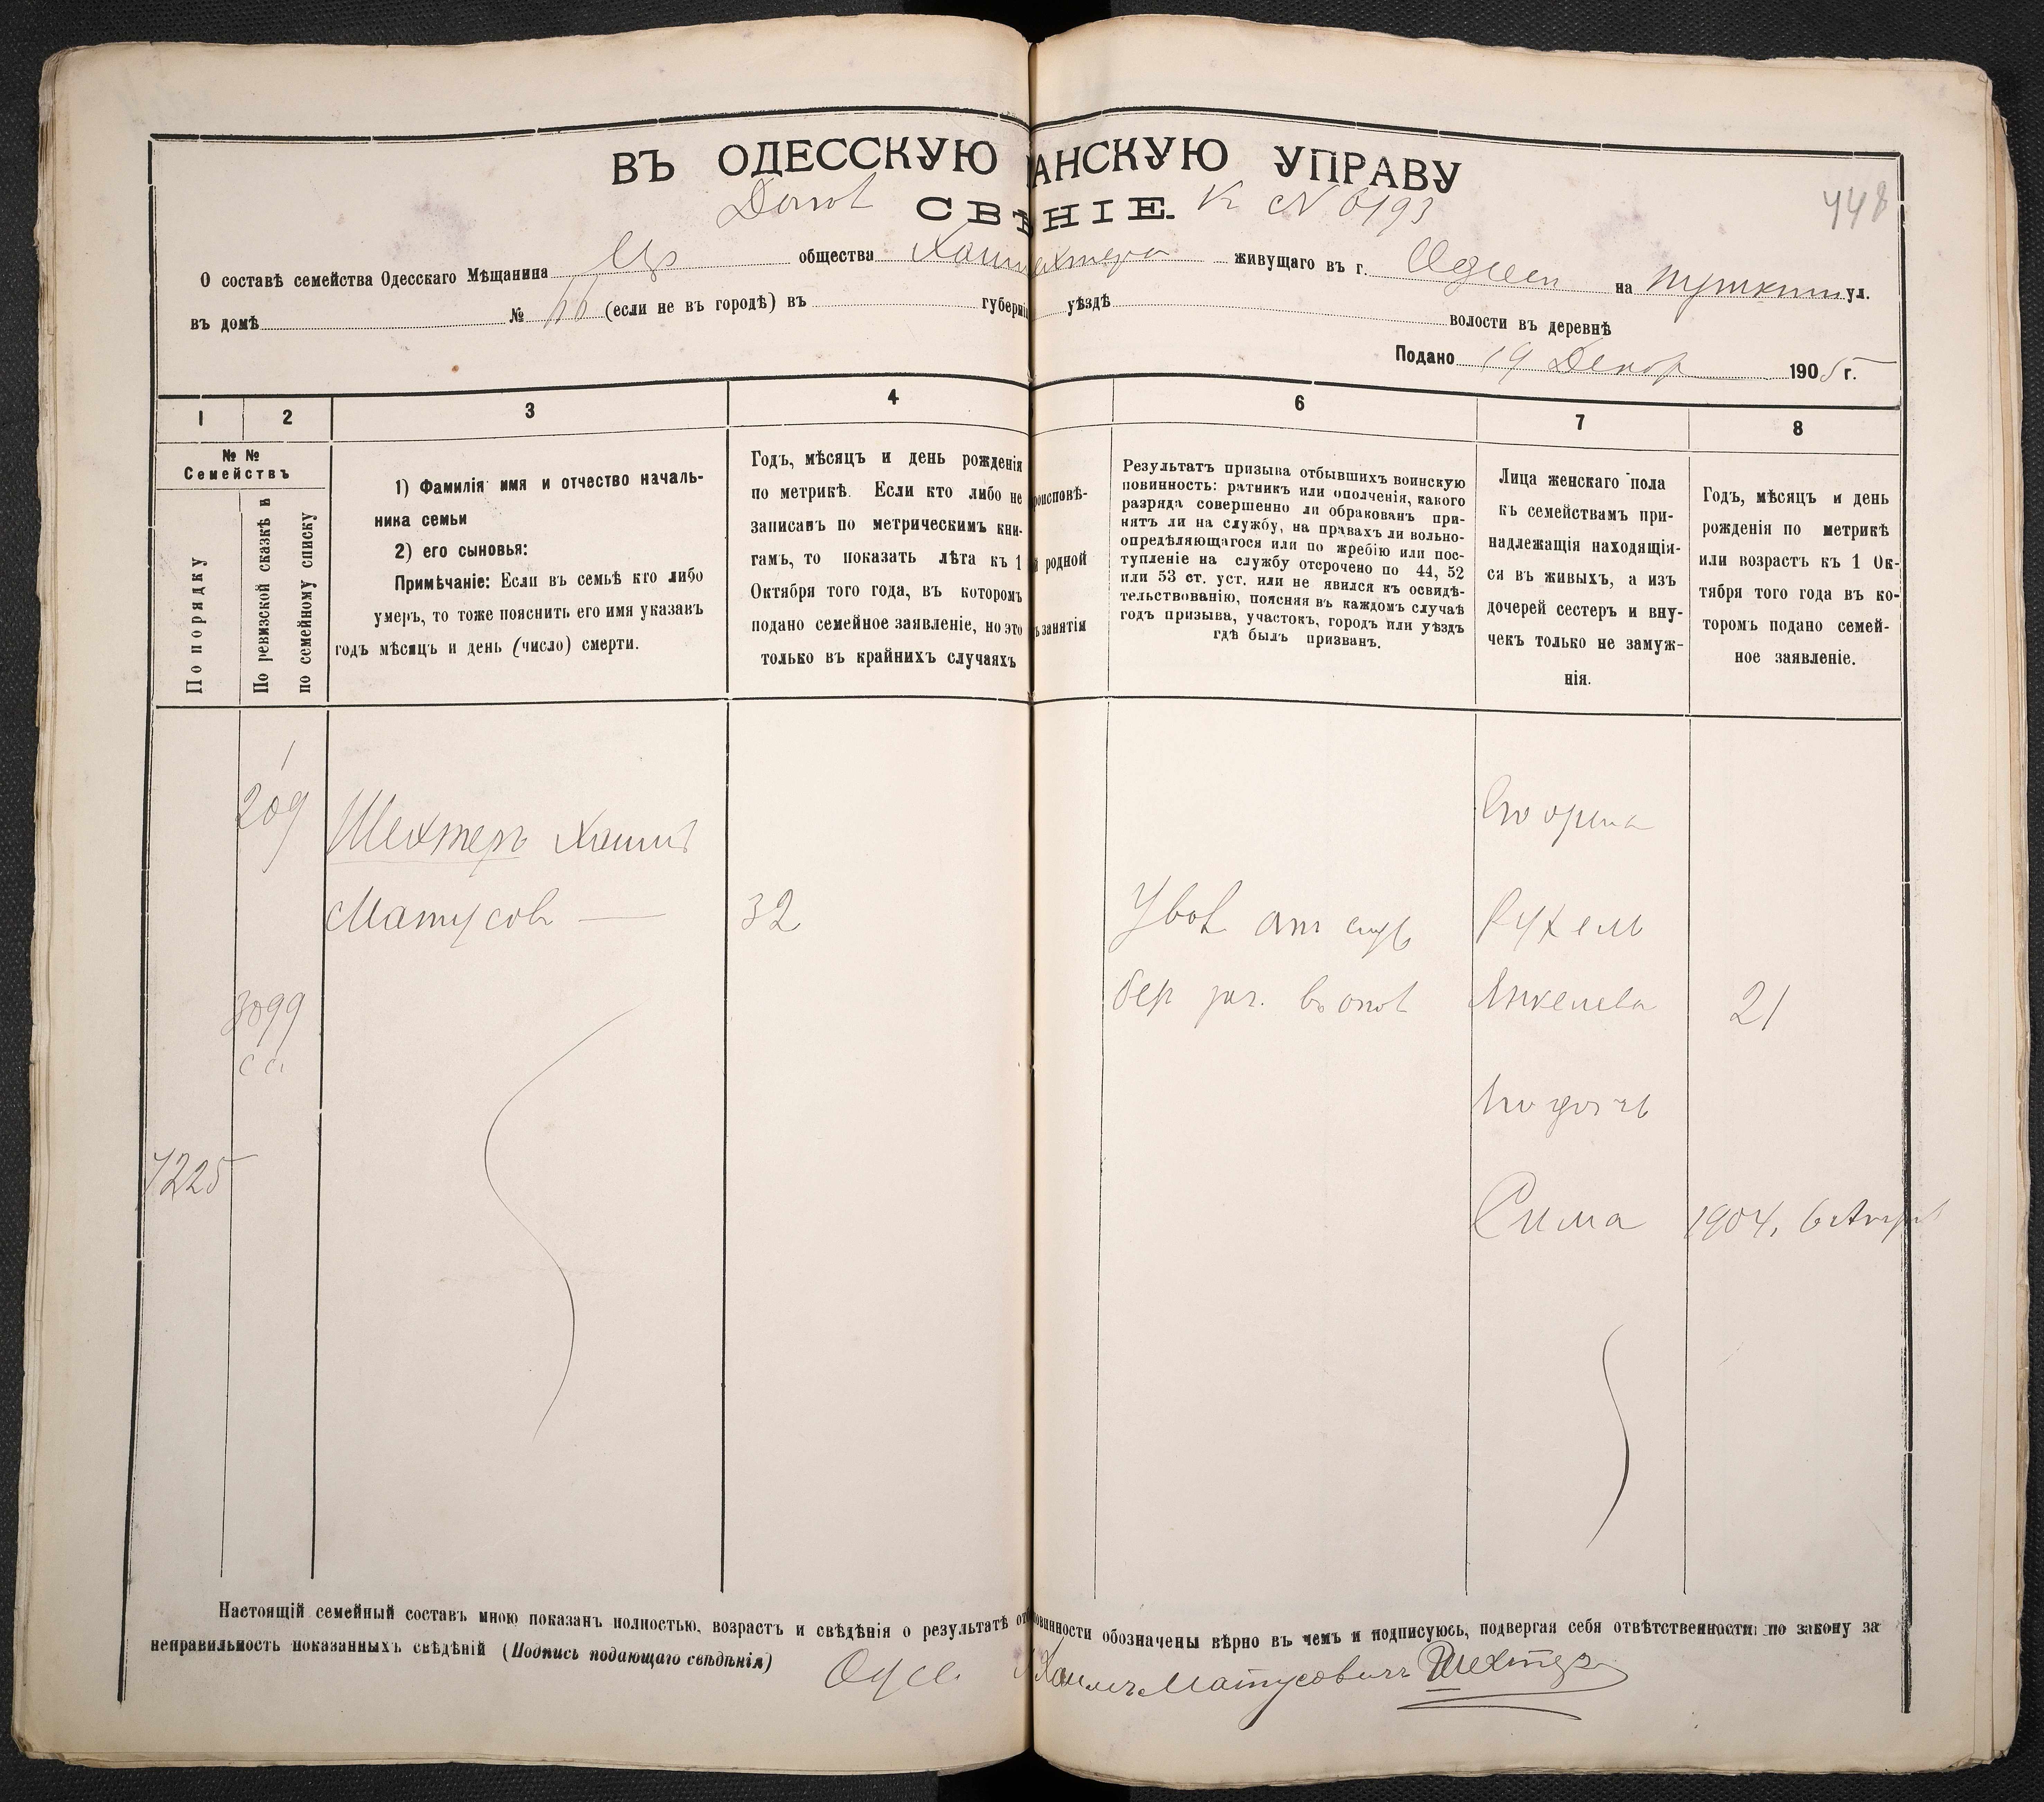 ВЪ ОДЕССКУЮ АНСКУЮ УПРАВУ
СВѢ НІЕ. К № 6193
448
О составѣ семейства Одесскаго Мѣщанина общества Хаим Шехтера живущаго въ г. Одессѣ на Пушкин ул.
въ домѣ № (если не въ городѣ) въ губерні уѣздѣ волости въ деревнѣ
Подано 19 Декабр 1905 г.
1 2 3 4 6 7 8
№ №
Семействъ
По порядку
По ревизской сказкѣ и
по семейному списку
1) Фамилія имя и отчество началь-
ника семьи
2) его сыновья:
Примѣчаніе: Если въ семьѣ кто либо
умеръ, то тоже пояснить его имя указавъ
годъ мѣсяцъ и день (число) смерти.
Годъ, мѣсяцъ и день рожденія
по метрикѣ. Если кто либо не
записанъ по метрическимъ кни-
гамъ, то показать лѣта къ 1
Октября того года, въ которомъ
подано семейное заявленіе, но это
только въ крайнихъ случаяхъ
роисповѣ-
й родной
ъ занятія
Результатъ призыва отбывшихъ воинскую
повинность: ратникъ или ополченія, какого
разряда совершенно ли обракованъ при-
нятъ ли на службу, на правахъ ли вольно-
опредѣляющагося или по жребію или пос-
тупленіе на службу отсрочено по 44, 52
или 53 ст. уст. или не явился къ освидѣ-
тельствованію, поясняя въ каждомъ случаѣ
годъ призыва, участокъ, городъ или уѣздъ
гдѣ былъ призванъ.
Лица женскаго пола
къ семействамъ при-
надлежащія находящія-
ся въ живыхъ, а изъ
дочерей сестеръ и вну-
чекъ только не замуж-
нія.
Годъ, мѣсяцъ и день
рожденія по метрикѣ
или возрастъ къ 1 Ок-
тября того года въ ко-
торомъ подано семей-
ное заявленіе.
209
Шехтеръ Хаимъ
Матусов 32
3099
с с.
7225
Увол от служ
Рухель
Янкелева 21
Его дочь
Сима 1904, 6 Апрѣл
Настоящій семейный составъ мною показанъ полностью, возрастъ и свѣдѣнія о результатѣ от повинности обозначены вѣрно въ чемъ и подписуюсь, подвергая себя отвѣтственности по закону за
неправильность показанныхъ свѣдѣній (Подпись подающаго свѣдѣнія) Хаимъ Матусовичъ Шехтеръ